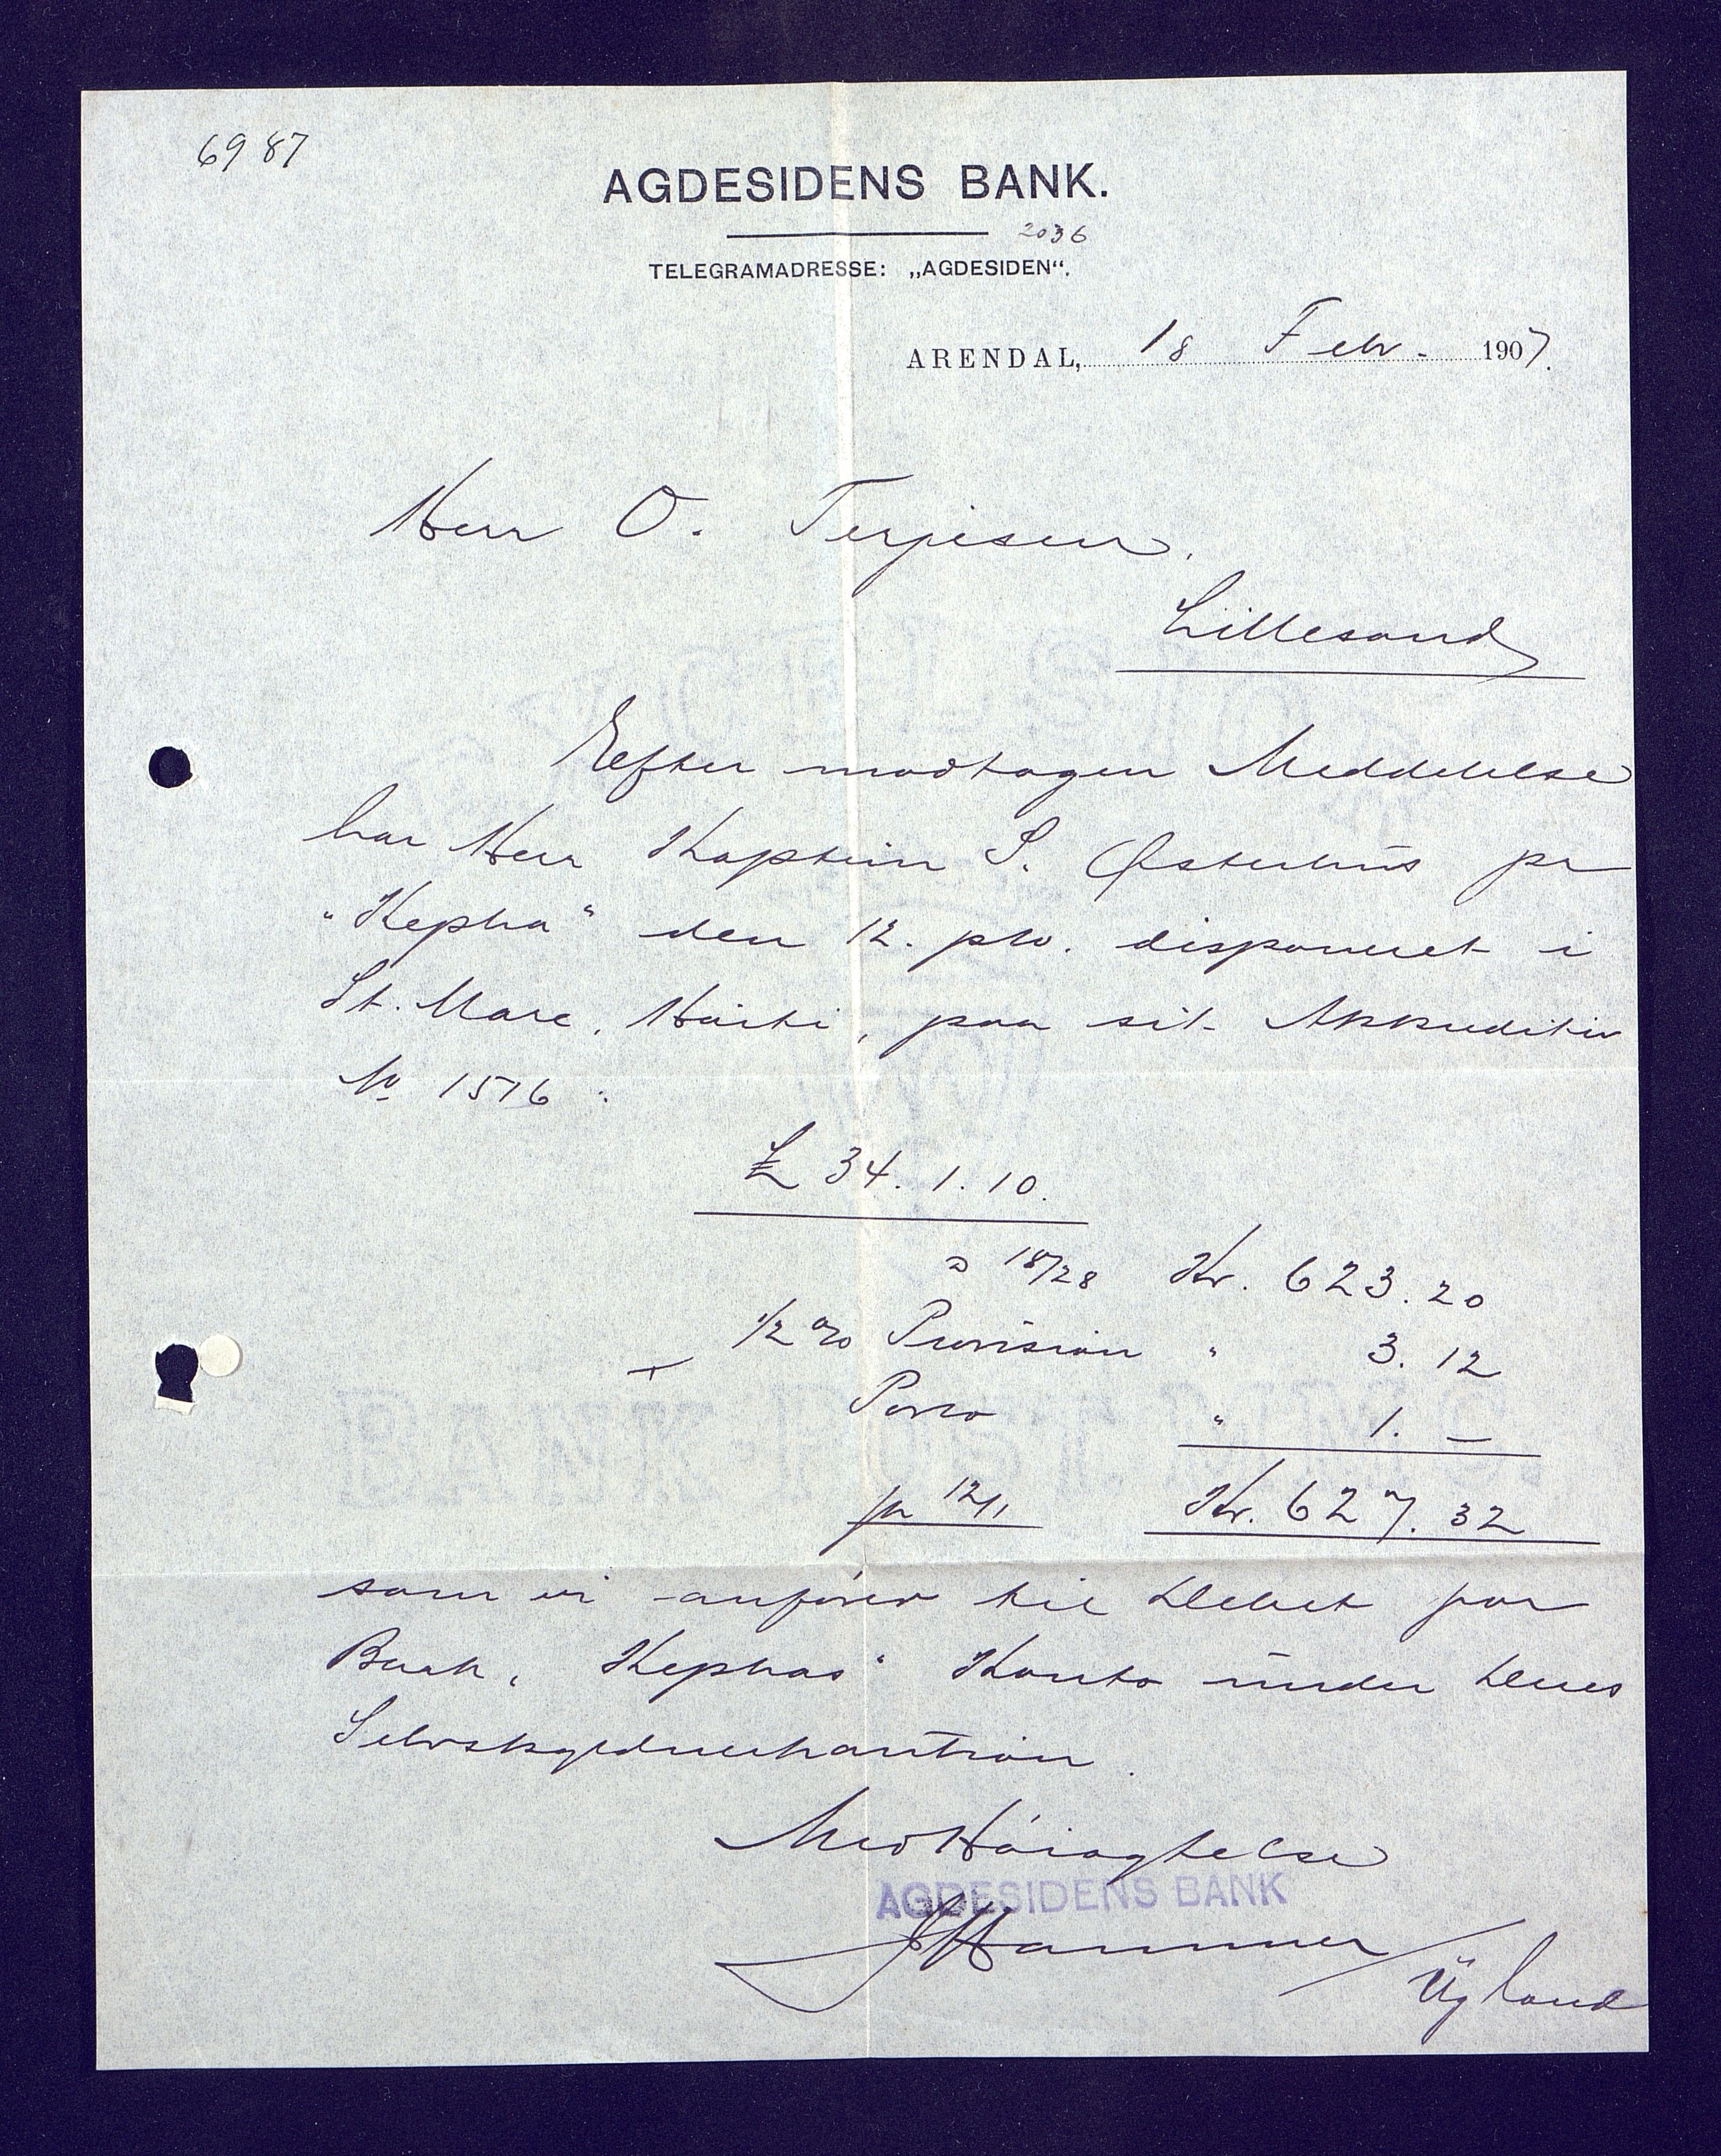 6987
AGDESIDENS BANK.
2036
TELEGRAMADRESSE: „AGDESIDEN“.
ARENDAL, 18 Febr. 1907.
Herr O. Terjesen.
Lillesand
Efter modtagen Meddelelse
har Herr Kaptein S. Østerhus pr
"Kepha" den 12. pto. disponeret i
St. Marc, Haiti, paa sit Akkreditiv
No 1576:
£ 34. 1. 10.
a 18/28 Kr. 623. 20
1/2 % Provision " 3. 12
Porto " 1. —
pr 12/1 Kr. 627. 32
som vi anfører til Debet for
Bark "Kephas" Konto under Deres
Selvskyldnerkaution.
Med Høiagtelse
AGDESIDENS BANK
JHammer / Ugland